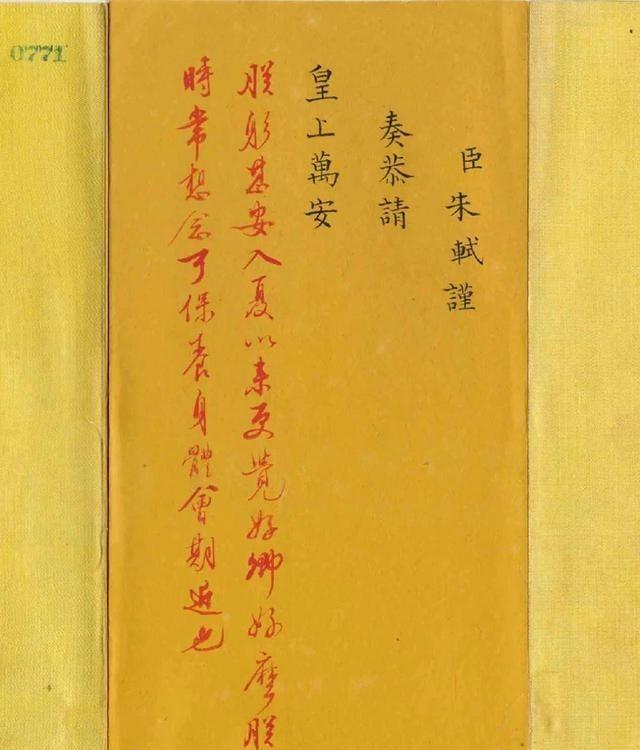 臣朱軾謹
奏恭請
皇上萬安
朕躬甚安入夏以來更覺好卿好麽朕
時常想念可保養身體會期近也
0771